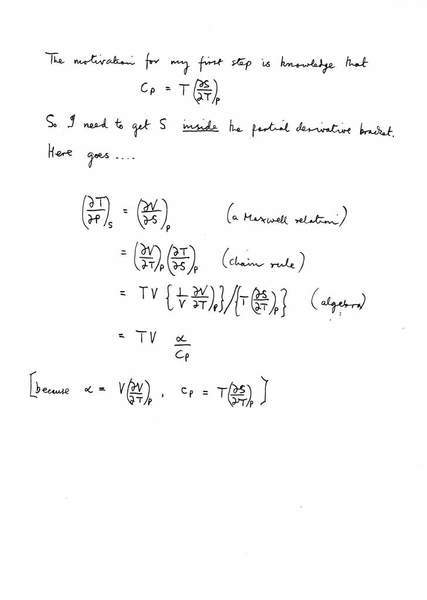 The motivation for my first step is knowledge that
C_P = T(∂S/∂T)_P
So I need to get S inside the partial derivative bracket.
Here goes ....
(∂T/∂P)_S = (∂V/∂S)_P (a Maxwell relation)
= (∂V/∂T)_P (∂T/∂S)_P (chain rule)
= TV {1/V ∂V/∂T)_P}/{T(∂S/∂T)_P} (algebra)
= TV α/C_P
[because α = V(∂V/∂T)_P , C_P = T(∂S/∂T)_P]